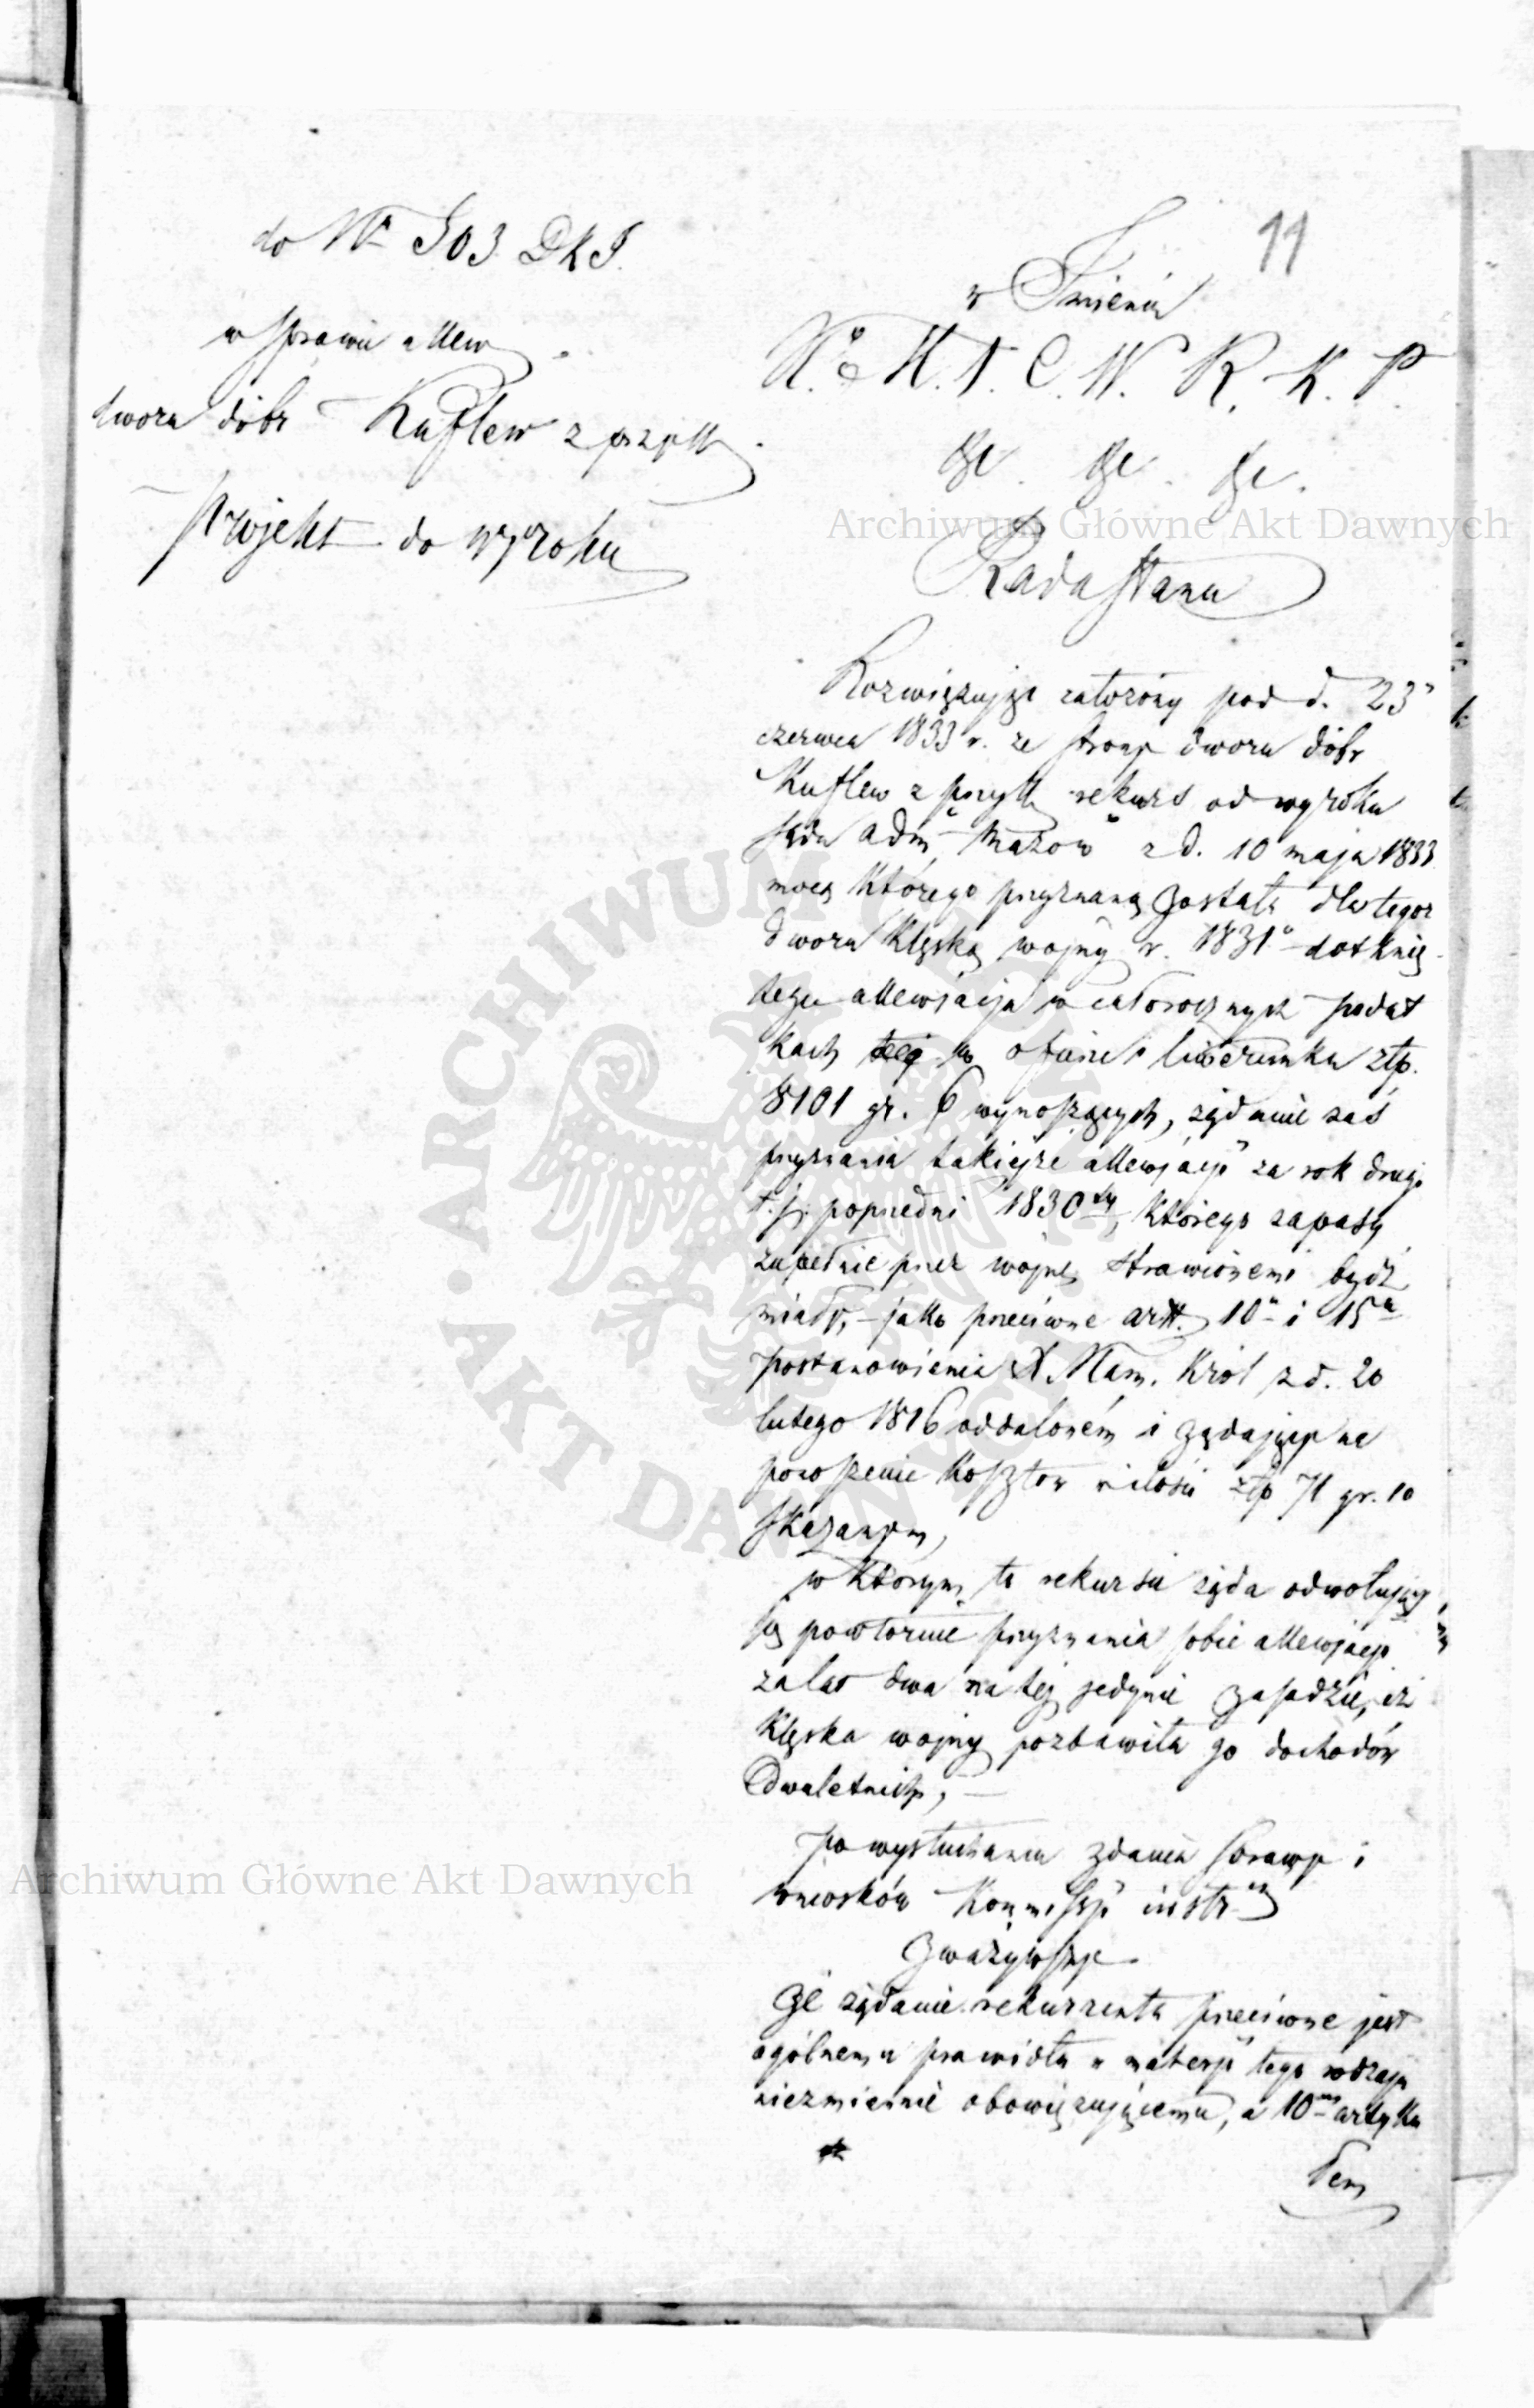 do Nr 503 DKS.
w sprawie allew.
dworu dóbr Kuflew z przyll.
projekt do wyroku
11
w Imieniu
N. M. I. C. W. R. K. P.
&c. &c. &c.
Rada Stanu
Rozwiązując założony pod d. 23
czerwca 1833 r. ze strony dworu dóbr
Kuflew z przyll. rekurs od wyroku
sądu adm. Mazow. z d. 10 maja 1833
mocą którego przyznaną została dla tegoż
dworu klęską wojny r. 1831 dotknię-
tego allewjacja w całorocznych podat
kach ofiary i liwerunku złp.
8101 gr. 6 wynoszących, żądanie zaś
przyznania takiejże allewjacji za rok drugi
t. j. poprzedni 1830ty, którego zapasy
zupełnie przez wojnę strawionemi bydź
miały, – jako przeciwne artt. 10 i 15
postanowienia X. Nam. Król z d. 20
lutego 1816 oddalonem i żądający na
poniesienie kosztów w ilości złp 71 gr. 10
skazanym,
w którym to rekursie żąda odwołujący
się powtórnie przyznania sobie allewjacji
za lat dwa na tej jedynie zasadzie, iż
klęska wojny pozbawiła go dochodów
dwuletnich, –
po wysłuchaniu zdania sprawy i
wniosków Kommissji instr.
zważywszy
że żądanie rekurrenta przeciwne jest
ogólnemu prawidłu w materji tego rodzaju
niezmiennie obowiązującemu, a 10m artyku
łem
Archiwum Główne Akt Dawnych
Archiwum Główne Akt Dawnych
ARCHIWUM GŁÓWNE • AKT DAWNYCH •